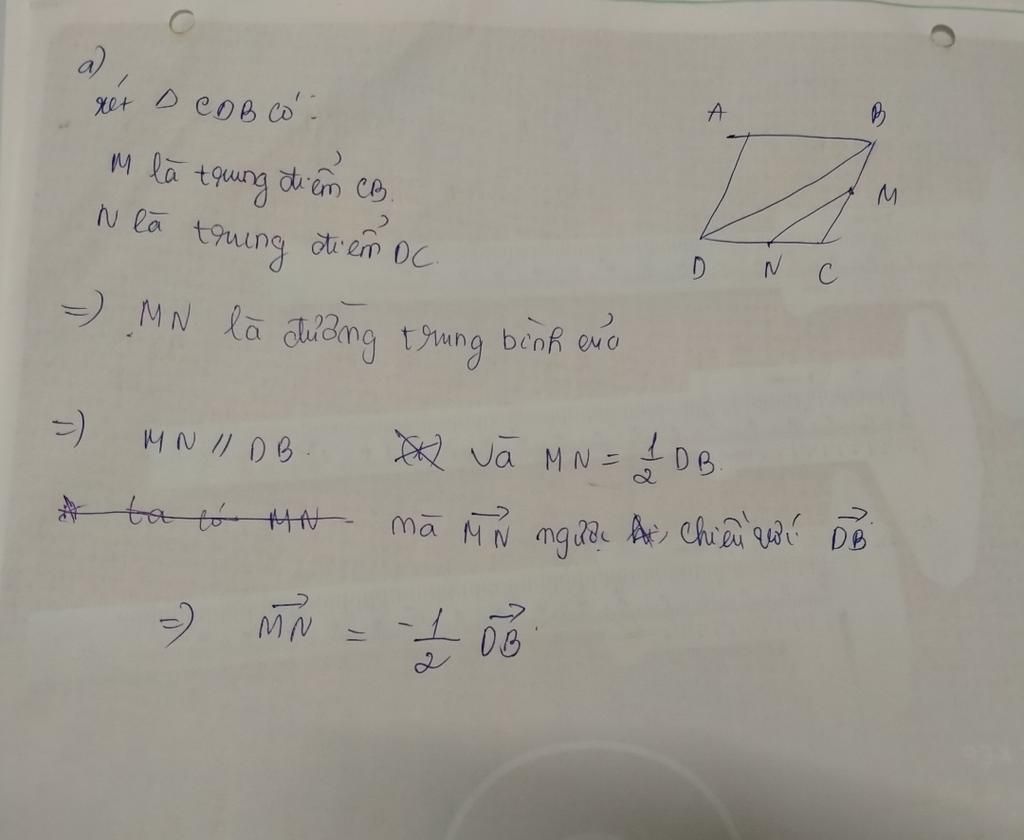 a)
xét Δ CDB có:
M là trung điểm CB.
N là trung điểm DC.
=> MN là đường trung bình của
=> MN // DB. và MN = 1/2 DB.
ta có MN mà \overrightarrow{MN} ngược chiều với \overrightarrow{DB}.
=> \overrightarrow{MN} = -1/2 \overrightarrow{DB}.
A B
M
D N C